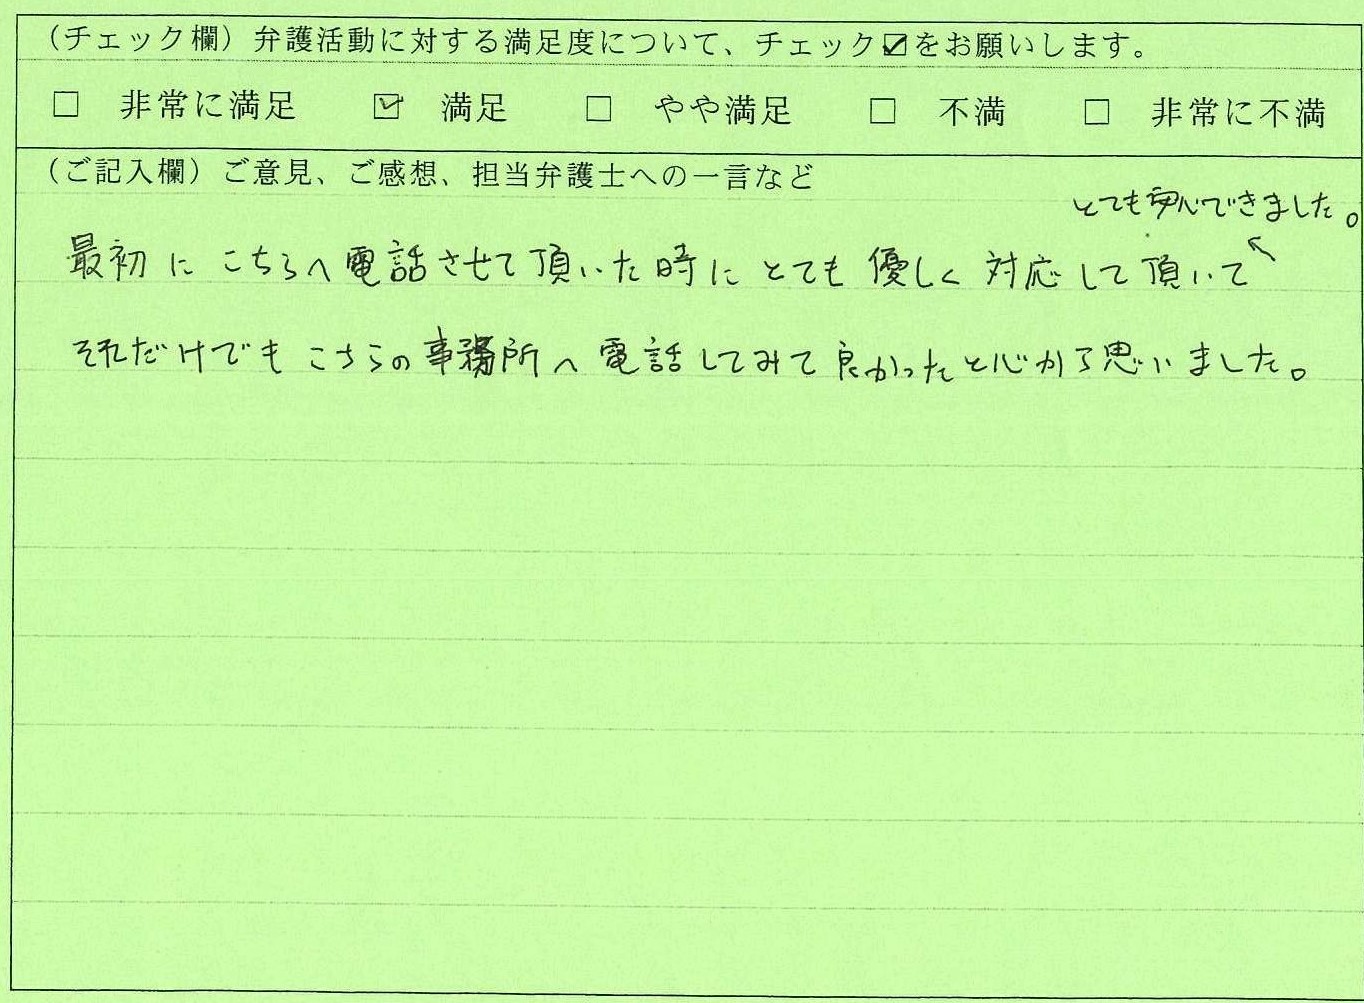 （チェック欄）弁護活動に対する満足度について、チェック☑をお願いします。
□ 非常に満足 ☑ 満足 □ やや満足 □ 不満 □ 非常に不満
（ご記入欄）ご意見、ご感想、担当弁護士への一言など
とても安心できました。
最初に こちらへ 電話させて頂いた時に とても 優しく 対応して頂いて
それだけでも こちらの事務所へ 電話してみて良かったと心から思いました。